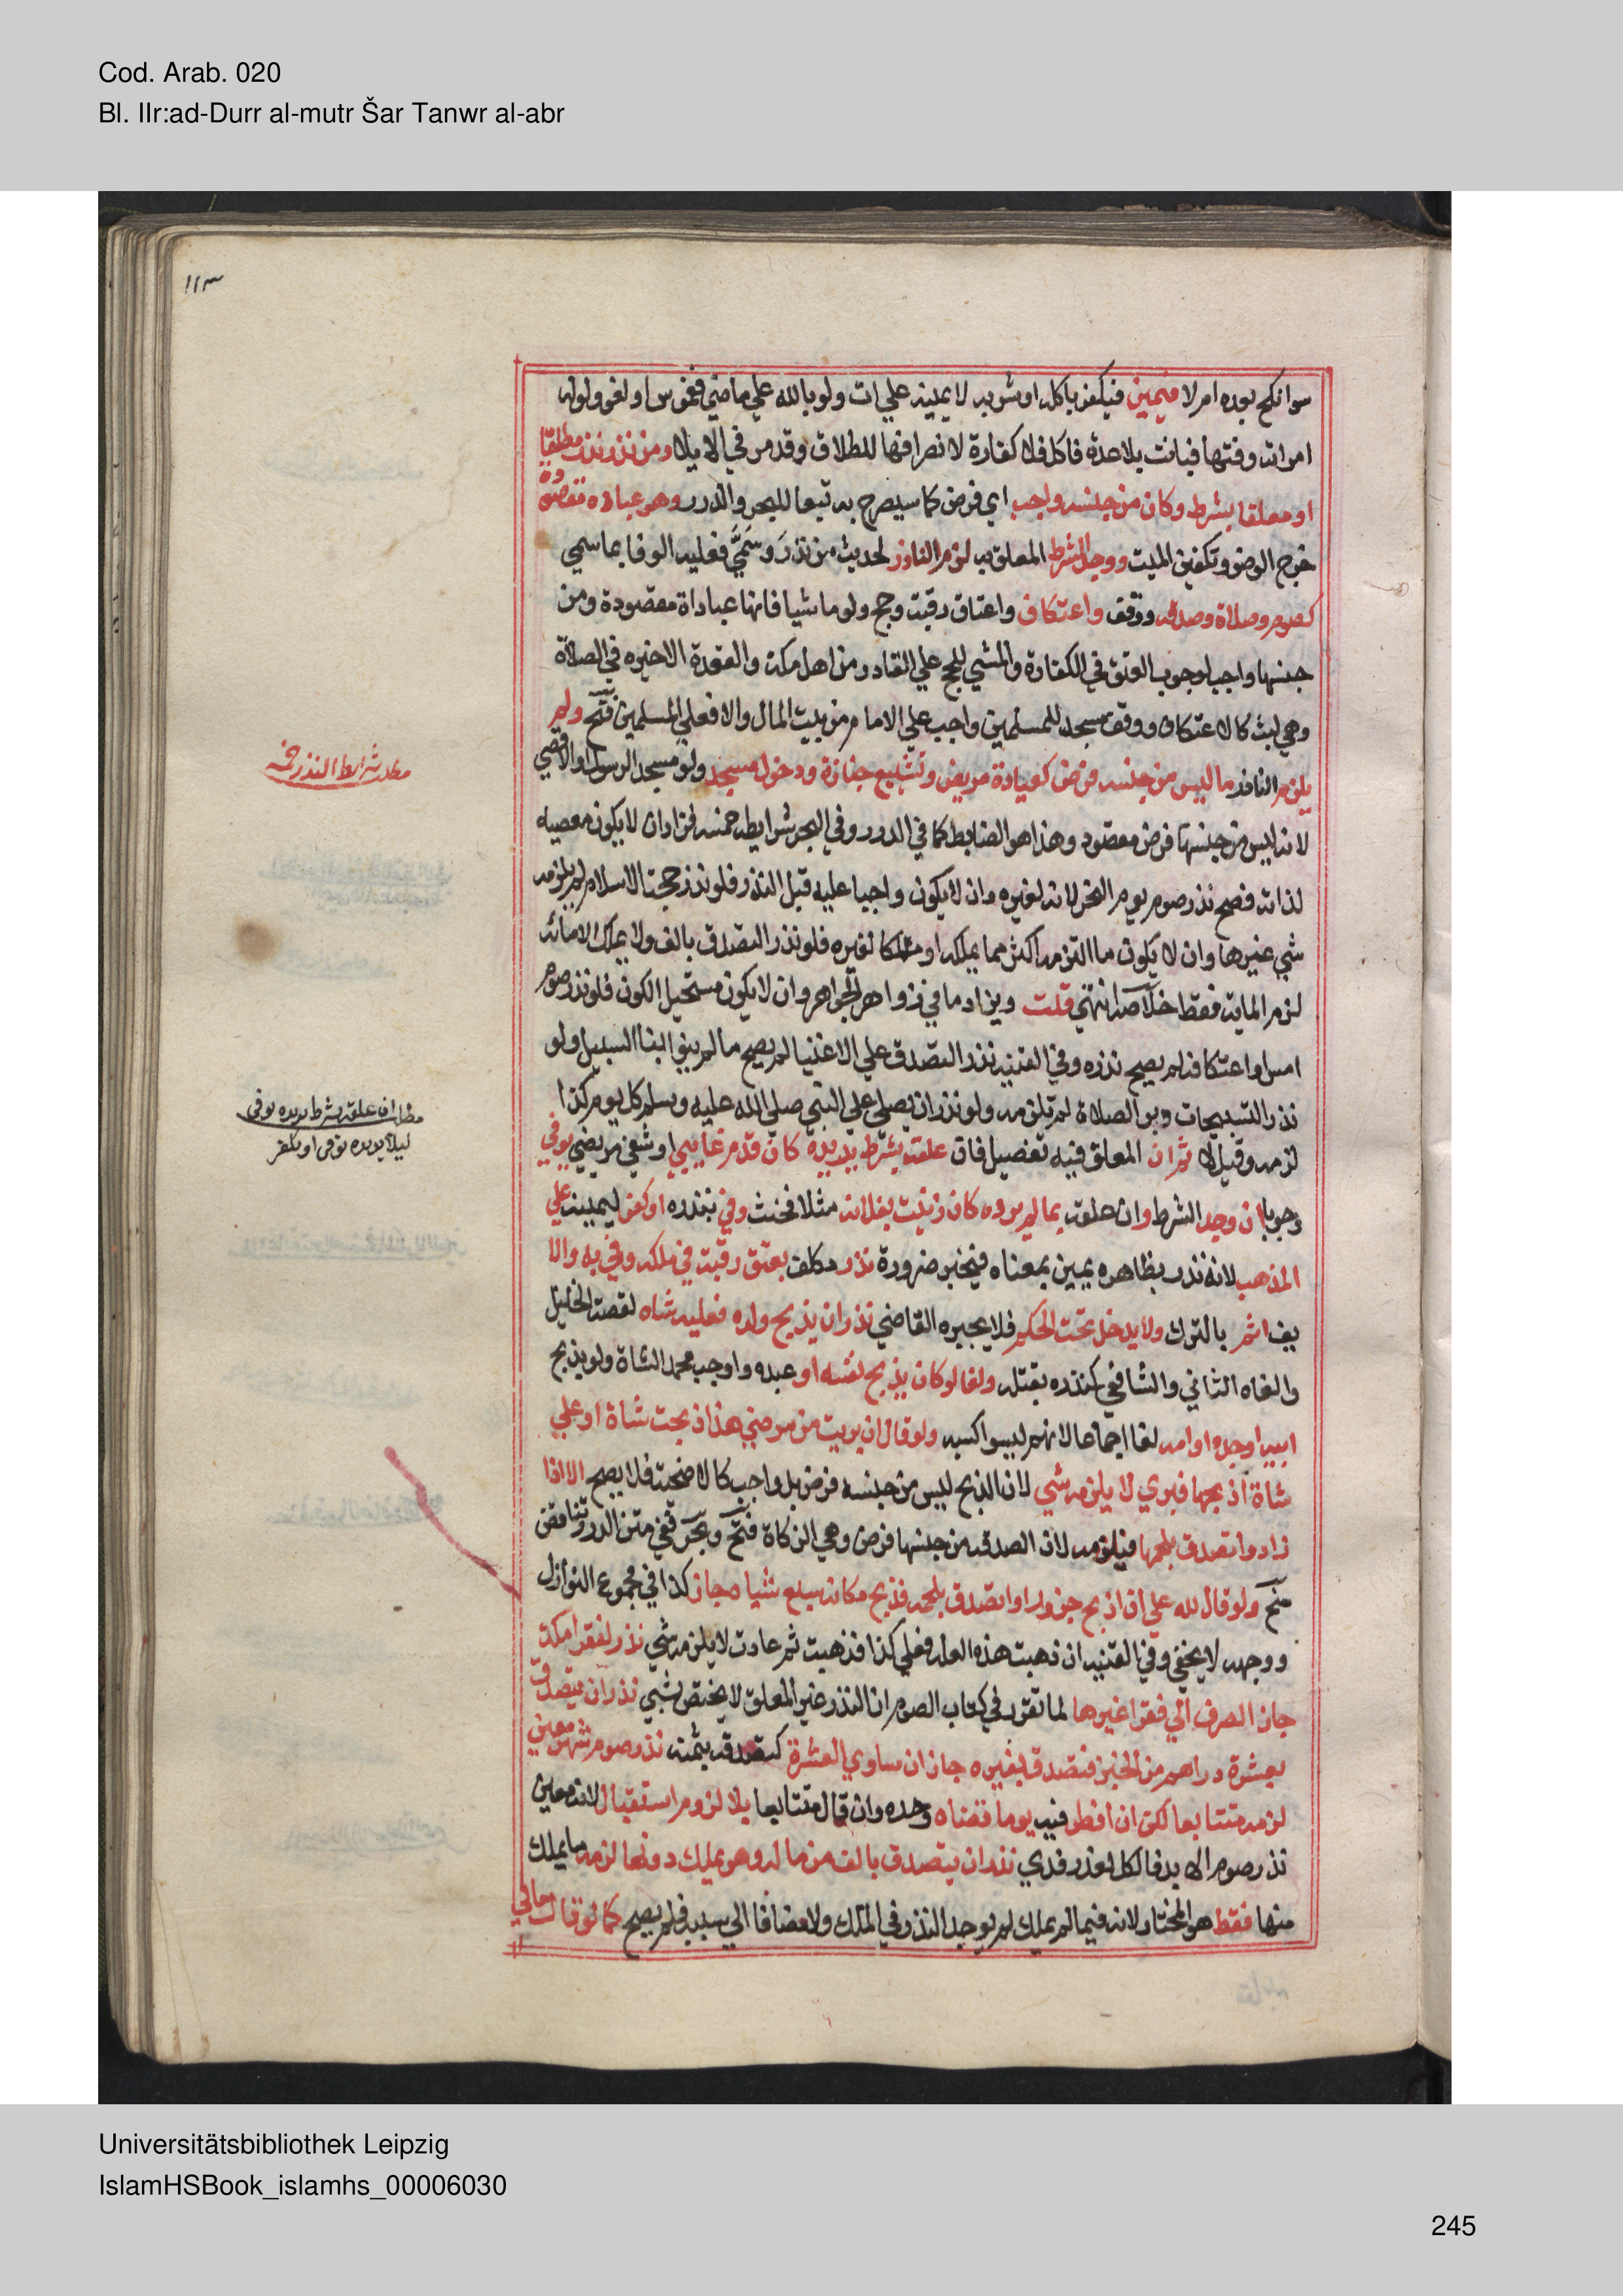 Cod. Arab. 020
Bl. IIr:ad-Durr al-mutr Šar Tanwr al-abr
١١٣
سوا نكح بعده ام لا فيمين فيكفر باكله او شربه لا يمينه علي ات ولو بالله علي ماضي فغموس او لغو ولو له
امراته وقتها فبانت بلا عدة فاكل فلا كفارة لانصرافها للطلاق وقد مر في الايلا ومن نذر نذرا مطلقا
او معلقا بشرط وكان من جنسه واجب اي فرض كما سيصرح به تبعا للبحر والدرر وهو عبادة مقصودة
خرج الوضو وتكفين الميت ووجد الشرط المعلق به لزم الناذر لحديث من نذر وسمي فعليه الوفا بما سمي
كصوم وصلاة وصدقه ووقف واعتكاف واعتاق رقبة وحج ولو ماشيا فانها عبادات مقصودة ومن
جنسها واجب لوجوب العتق في الكفارة والمشي للحج علي القادر من اهل مكة والقعدة الاخيره في الصلاة
وهي لبث كالاعتكاف ووقف مسجد للمسلمين واجب علي الامام من بيت المال والا فعلي المسلمين فتح ولم
يلزم الناذر ما ليس من جنسه فرض كعيادة مريض وتشييع جنازة ودخول مسجد ولو مسجد الرسول او الاقصي
لانه ليس من جنسها فرض مقصود وهذا هو الضابط كما في الدرر وفي البحر شرايطه خمسه فزاد ان لا يكون معصيه
لذاته فصح نذر صوم يوم النحر لانه لغيره وان لا يكون واجبا عليه قبل النذر فلو نذر حجة الاسلام لم يلزمه
شي غيرها وان لا يكون ما التزمه اكثر مما يملكه او ملكا لغيره فلو نذر التصدق بالف ولا يملك الا مائه
لزم الماية فقط خلاصه انتهي قلت ويزاد ما في زواهر الجواهر وان لا يكون مستحيل الكون فلو نذر صوم
امس او اعتكافه لم يصح نذره وفي القنيه نذر التصدق علي الاغنيا لم يصح ما لم ينو ابنا السبيل ولو
نذر التسبيحات دبر الصلاة لم تلزمه ولو نذر ان يصلي علي النبي صلي الله عليه وسلم كل يوم كذا
لزمه وقيل لا ثم ان المعلق فيه تفصيل فان علقه بشرط يريده كان قدم غايبي او شفي مريضي يوفي
وجوبا ان وجد الشرط وان علقه بما لم يرده كان زنيت بفلانه مثلا فحنث وفي بنذره او كفر ليمينه علي
المذهب لانه نذر بظاهره يمين بمعناه فيخير ضرورة نذر مكلف بعتق رقبة في ملكه وفي به والا
يف اثم بالترك ولا يدخل تحت الحكم فلا يجبره القاضي نذر ان يذبح ولده فعليه شاه لقصة الخليل
والغاه الثاني والشافعي كنذره بقتله ولغا لو كان يذبح نفسه او عبده واوجب محمد الشاة ولو يذبح
ابيه او جده او امه لغا اجماعا لانهم ليسوا كسبه ولو قال ان بريت من مرضي هذا ذبحت شاة او علي
شاة اذبحها فبري لا يلزمه شي لان الذبح ليس من جنسه فرض بل واجب كالاضحية فلا يصح الا اذا
زاد واتصدق بلحمها فيلزمه لان الصدقه من جنسها فرض وهي الزكاة فتح وبحر ففي متن الدرر تناقض
منح ولو قال لله علي ان اذبح جزورا واتصدق بلحمه فذبح مكانه سبع شياه جاز كذا في مجموع النوازل
ووجهه لا يخفي وفي القنيه ان ذهبت هذه العله فعلي كذا فذهبت ثم عادت لا يلزمه شي نذر لفقرا مكة
جاز الصرف الي فقرا غيرها لما تقرر في كتاب الصوم ان النذر غير المعلق لا يختص بشي نذر ان يتصدق
بعشرة دراهم من الخبز فتصدق بغيره جاز ان ساوي العشرة كتصدقه بثمنه نذر صوم شهر معين
لزمه متتابعا لكن ان افطر فيه يوما قضاه وحده وان قال متتابعا بلا لزوم استقبال لانه معين
نذر صوم الابد فاكل لعذر فدي نذر ان يتصدق بالف من ماله وهو يملك دونها لزمه ما يملك
منها فقط هو المختار لانه فيما لم يملك لم يوجد النذر في الملك ولا مضافا الي سببه فلم يصح كما لو قال مالي
مطلب شرايط النذر خمسة
مطلب ان علقه بشرط يريده يوفي
ليلا يريده يوفي او يكفر
Universitätsbibliothek Leipzig
IslamHSBook_islamhs_00006030
245